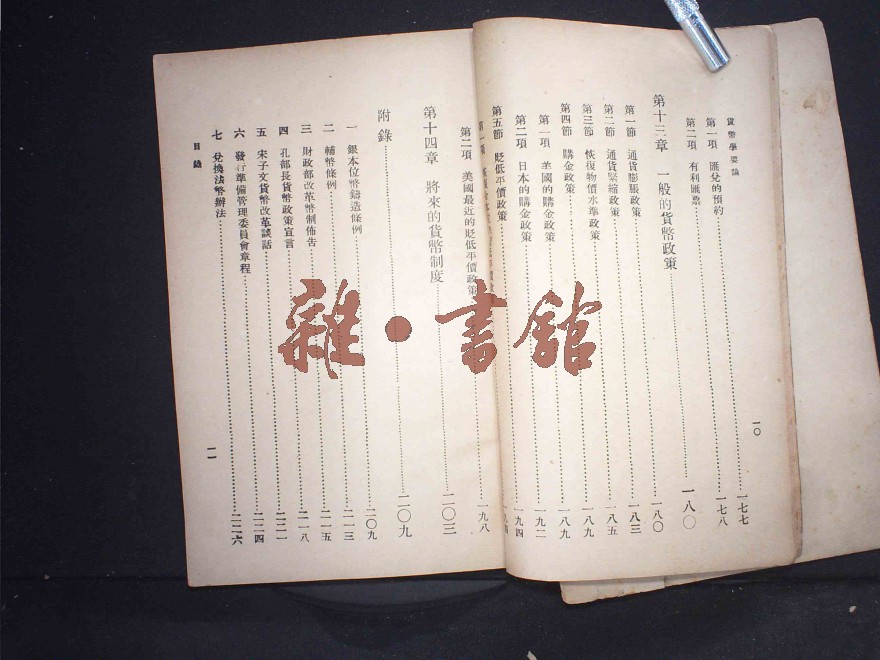 貨幣學要論
第一項 匯兌的預約 一七七
第二項 有利匯票 一七八
第十三章 一般的貨幣政策 一八〇
第一節 通貨膨脹政策 一八〇
第二節 通貨緊縮政策 一八三
第三節 恢復物價水準政策 一八五
第四節 購金政策 一八九
第一項 美國的購金政策 一八九
第二項 日本的購金政策 一九二
第五節 貶低平價政策 一九四
一〇
第一項
第二項 美國最近的貶低平價政策 一九八
第十四章 將來的貨幣制度 二〇三
附錄 二〇九
一 銀本位幣鑄造條例 二〇九
二 輔幣條例 二一三
三 財政部改革幣制佈告 二一五
四 孔部長貨幣政策宣言 二一八
五 宋子文貨幣改革談話 二二一
六 發行準備管理委員會章程 二二四
七 兌換法幣辦法 二二六
目錄
一一
雜·書館